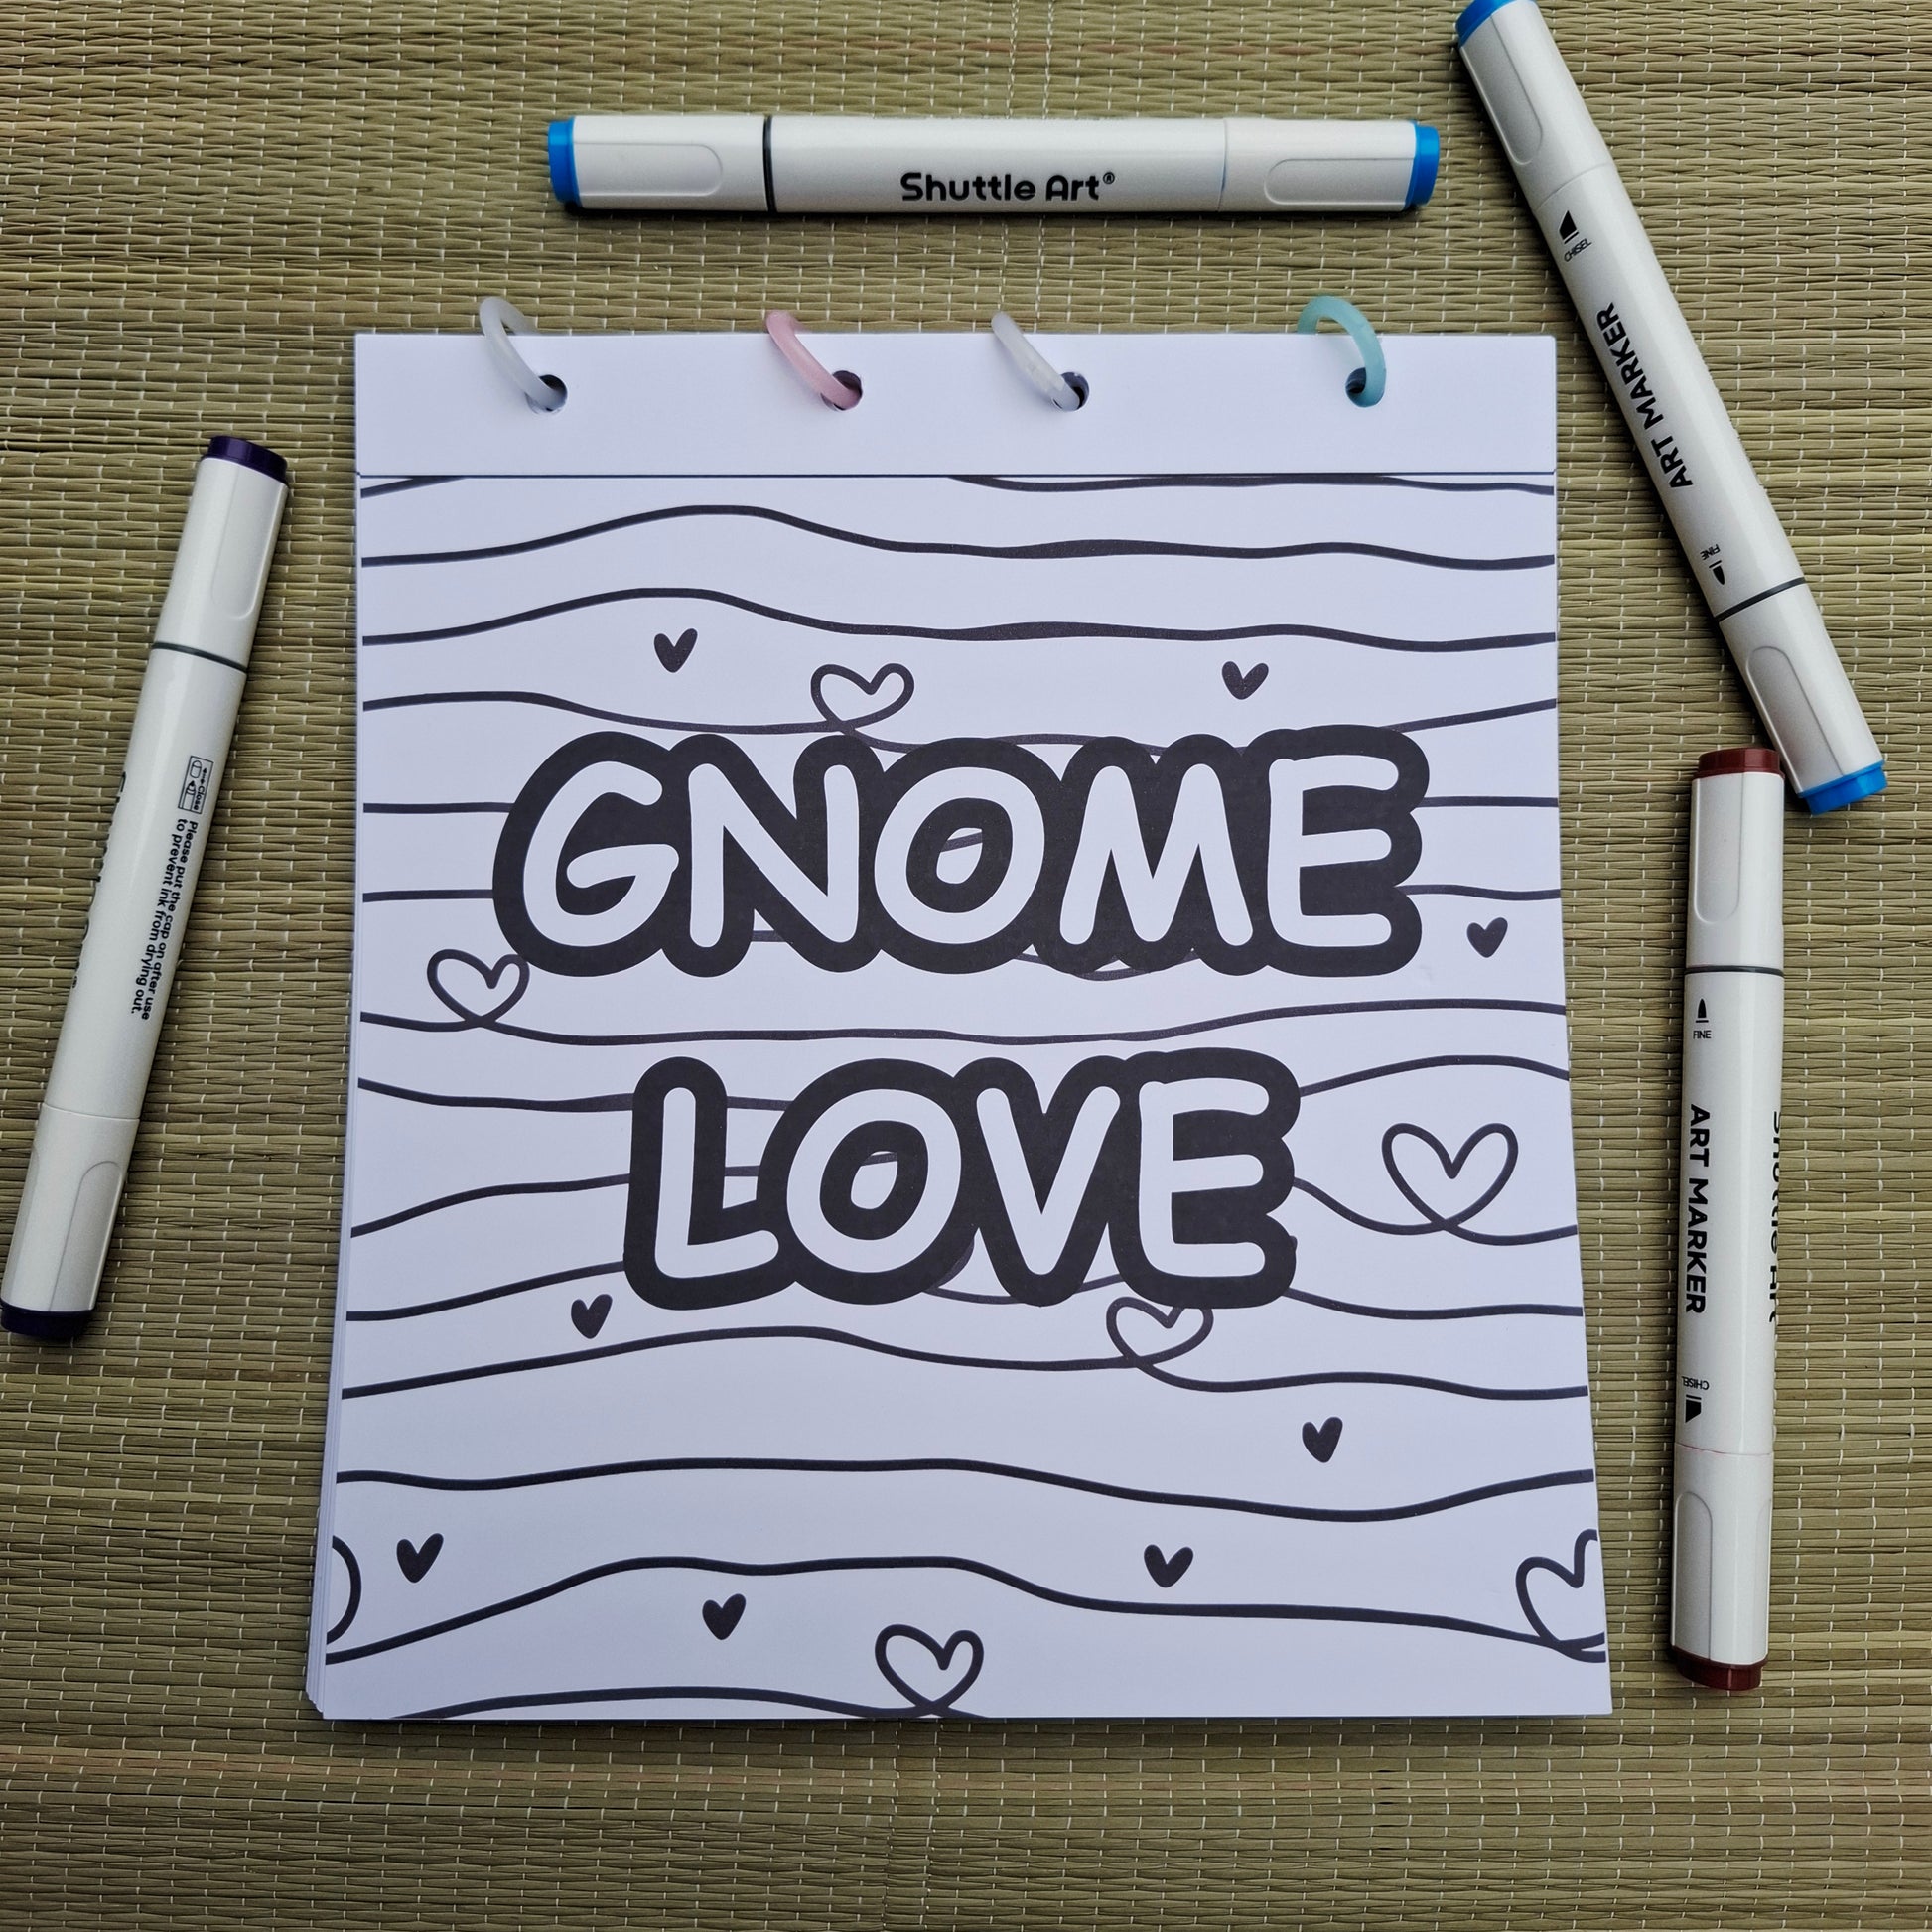 Shuttle Art®
CHISEL
ART MARKER
FINE
GNOME
LOVE
Close
Please put the cap on after use
to prevent ink from drying out.
FINE
ART MARKER
Shuttle Art
CHISEL